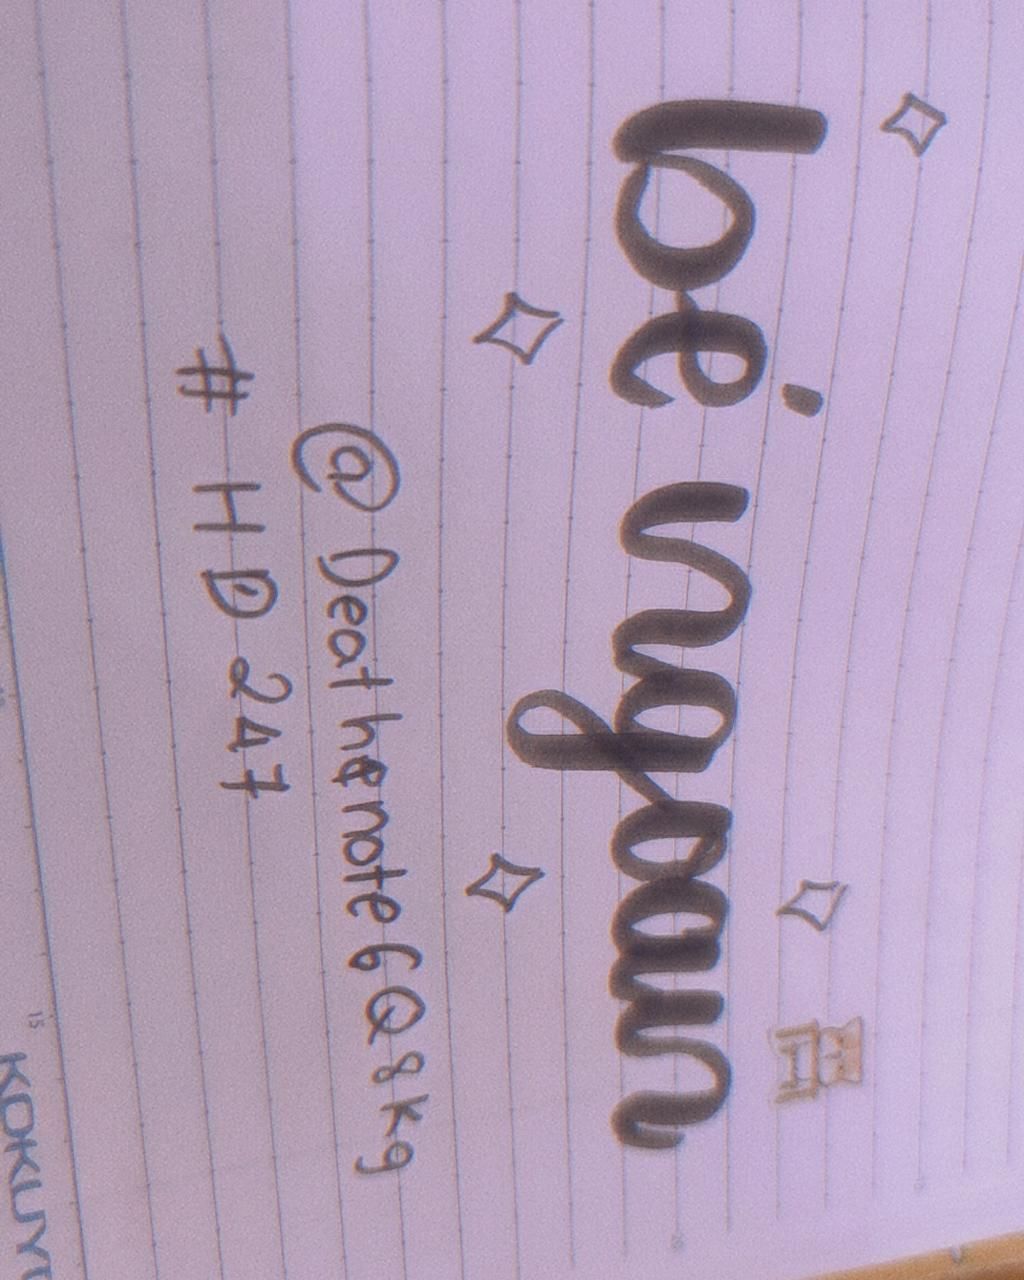 bé ngoan
@Deathenote6Q8kg
#HD247
15
KOKUY